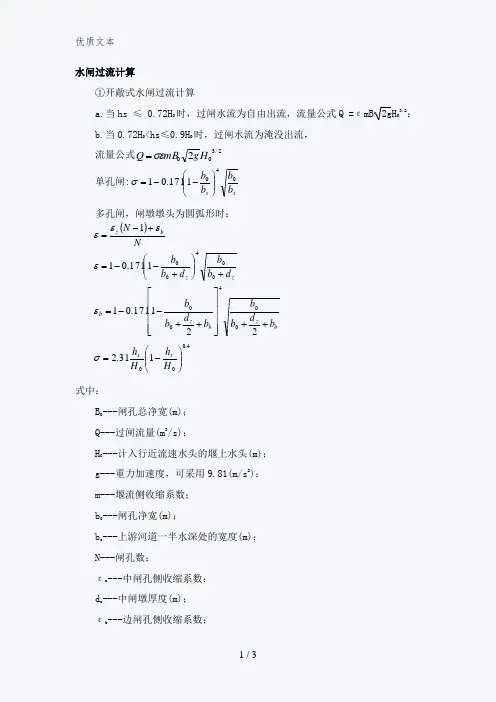 优质文本
水闸过流计算
①开敞式水闸过流计算
a.当hs ≤ 0.72H₀时，过闸水流为自由出流，流量公式Q =εmB√2gH₀^{3/2}；
b.当0.72H₀<hs≤0.9H₀时，过闸水流为淹没出流，
流量公式Q=σεmB₀√2g H₀^{3/2}
单孔闸:σ=1-0.171(1-b₀/bₛ)⁴√(b₀/bₛ)
多孔闸，闸墩墩头为圆弧形时：
ε=(ε_z(N-1)+ε_b)/N
ε=1-0.171(1-b₀/(b₀+d_z))⁴√(b₀/(b₀+d_z))
ε_b=1-0.171[1-b₀/(b₀+d_z/2+b_b)]⁴√(b₀/(b₀+d_z/2+b_b))
σ=2.31 hₛ/H₀(1-hₛ/H₀)^{0.4}
式中：
B₀---闸孔总净宽(m)；
Q---过闸流量(m³/s)；
H₀---计入行近流速水头的堰上水头(m)；
g---重力加速度，可采用9.81(m/s²)；
m---堰流侧收缩系数；
b₀---闸孔净宽(m)；
bₛ---上游河道一半水深处的宽度(m)；
N---闸孔数；
ε_z---中闸孔侧收缩系数；
d_z---中闸墩厚度(m)；
ε_b---边闸孔侧收缩系数；
1 / 3